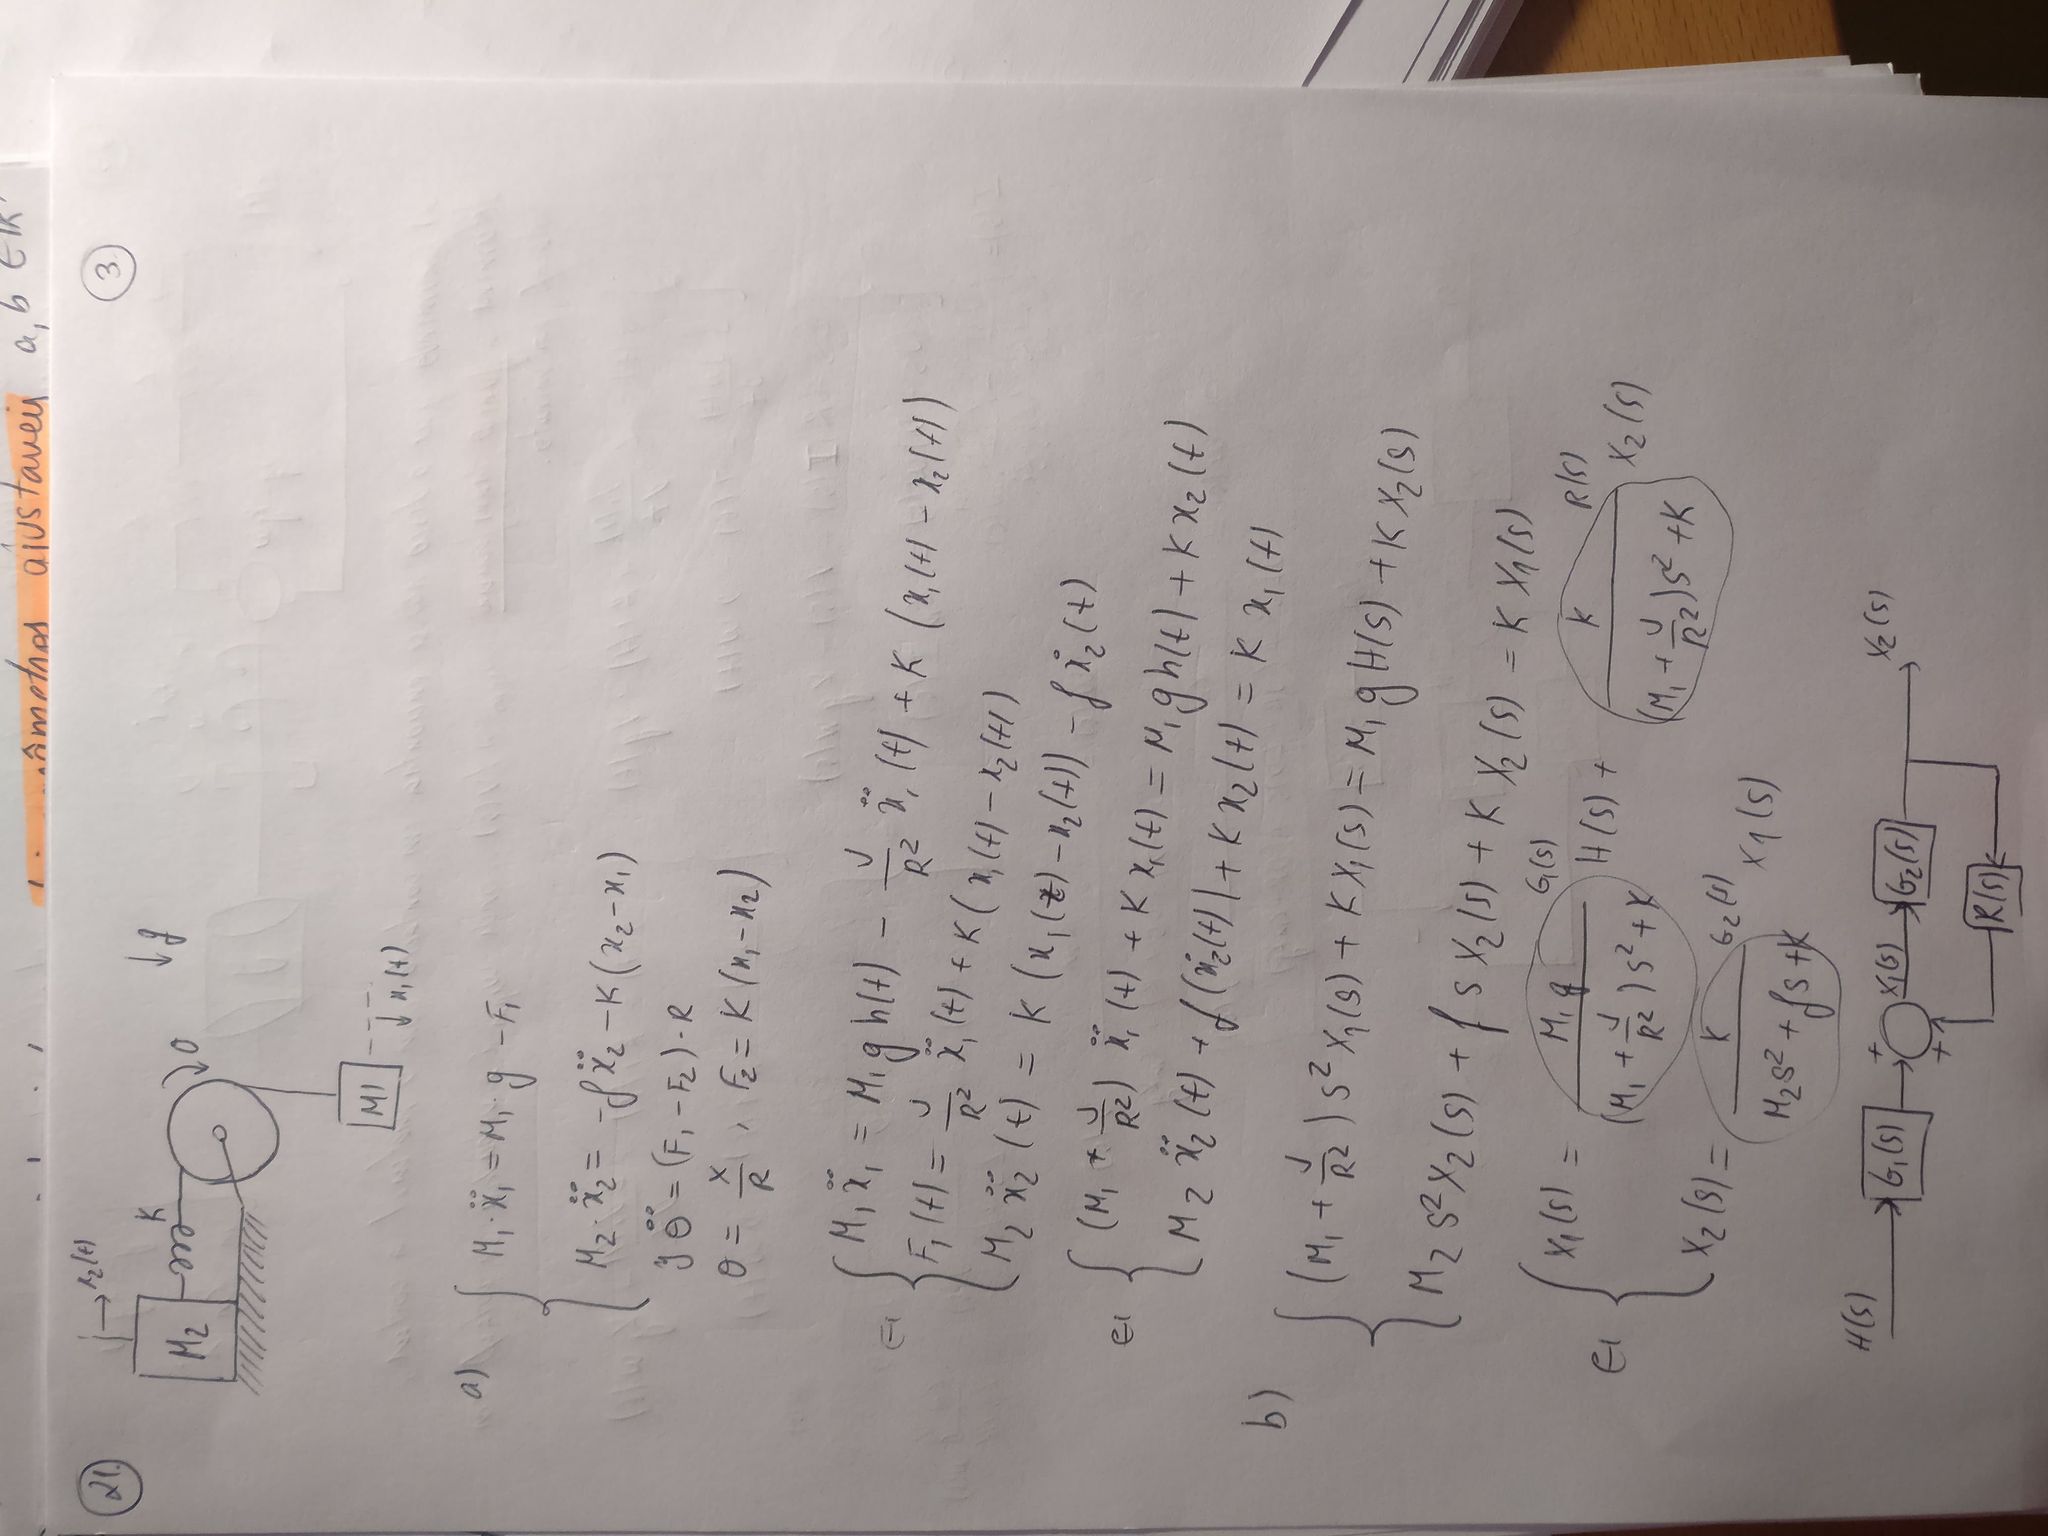 ajustaveis a, b ∈ ℝ
21.
3
x₂(t)
K
M₂
θ
↓ g
M1
x₁(t)
a)
M₁·ẍ₁ = M₁·g − F₁
M₂·ẍ₂ = −fẍ₂ − K(x₂−x₁)
J θ̈ = (F₁ − F₂)·R
θ = X/R , F₂ = K(x₁−x₂)
M₁ẍ₁ = M₁ g h(t) − J/R² ẍ₁(t) + K (x₁(t) − x₂(t))
F₁(t) = J/R² ẍ₁(t) + K(x₁(t) − x₂(t))
M₂ ẍ₂(t) = K (x₁(t) − x₂(t)) − f ẋ₂(t)
(M₁ + J/R²) ẍ₁(t) + K x₁(t) = M₁ g h(t) + K x₂(t)
M₂ ẍ₂(t) + f(ẋ₂(t)) + K x₂(t) = K x₁(t)
b)
(M₁ + J/R²) s² X₁(s) + K X₁(s) = M₁ g H(s) + K X₂(s)
M₂ s² X₂(s) + f s X₂(s) + K X₂(s) = K X₁(s)
G₁(s) R(s)
X₁(s) = M₁g/((M₁ + J/R²)s² + K) H(s) + K/((M₁ + J/R²)s² + K) X₂(s)
X₂(s) = K/(M₂s² + fs + K) G₂(s) X₁(s)
H(s) G₁(s) + + X₁(s) G₂(s) X₂(s)
R(s)